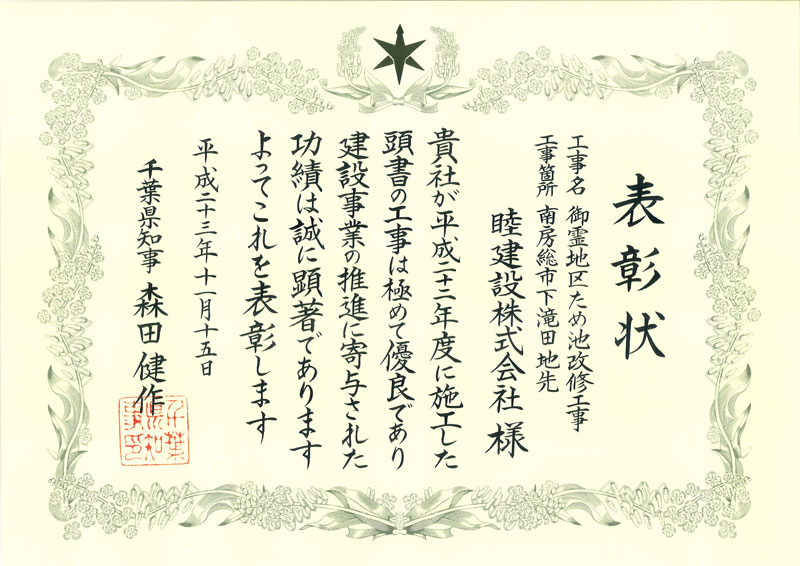 表彰状
工事名 御霊地区ため池改修工事
工事箇所 南房総市下滝田地先
睦建設株式会社 様
貴社が平成二十二年度に施工した
頭書の工事は極めて優良であり
建設事業の推進に寄与された
功績は誠に顕著であります
よってこれを表彰します
平成二十三年十一月十五日
千葉県知事 森田健作
千葉県知事印